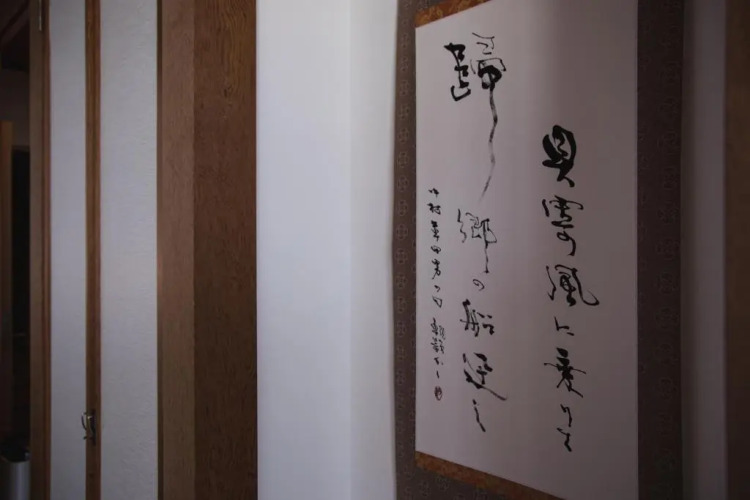 貝寄風に乗りて
歸郷の船迅し
中村草田男の句